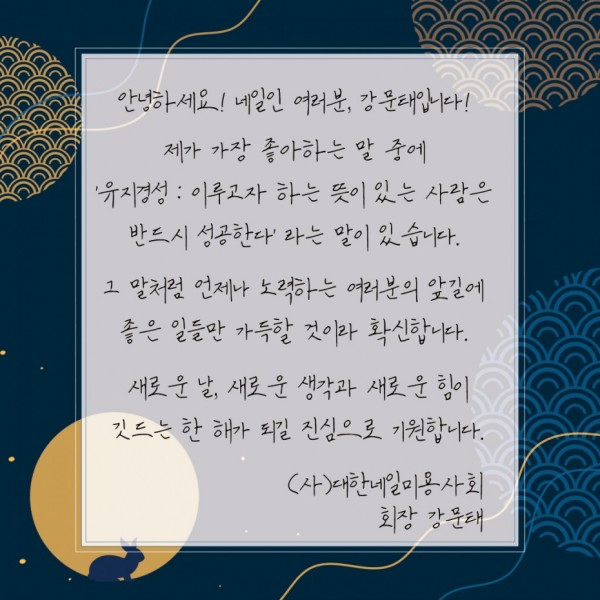 안녕하세요! 네일인 여러분, 강문태입니다!
제가 가장 좋아하는 말 중에
'유지경성 : 이루고자 하는 뜻이 있는 사람은
반드시 성공한다' 라는 말이 있습니다.
그 말처럼 언제나 노력하는 여러분의 앞길에
좋은 일들만 가득할 것이라 확신합니다.
새로운 날, 새로운 생각과 새로운 힘이
깃드는 한 해가 되길 진심으로 기원합니다.
(사)대한네일미용사회
회장 강문태